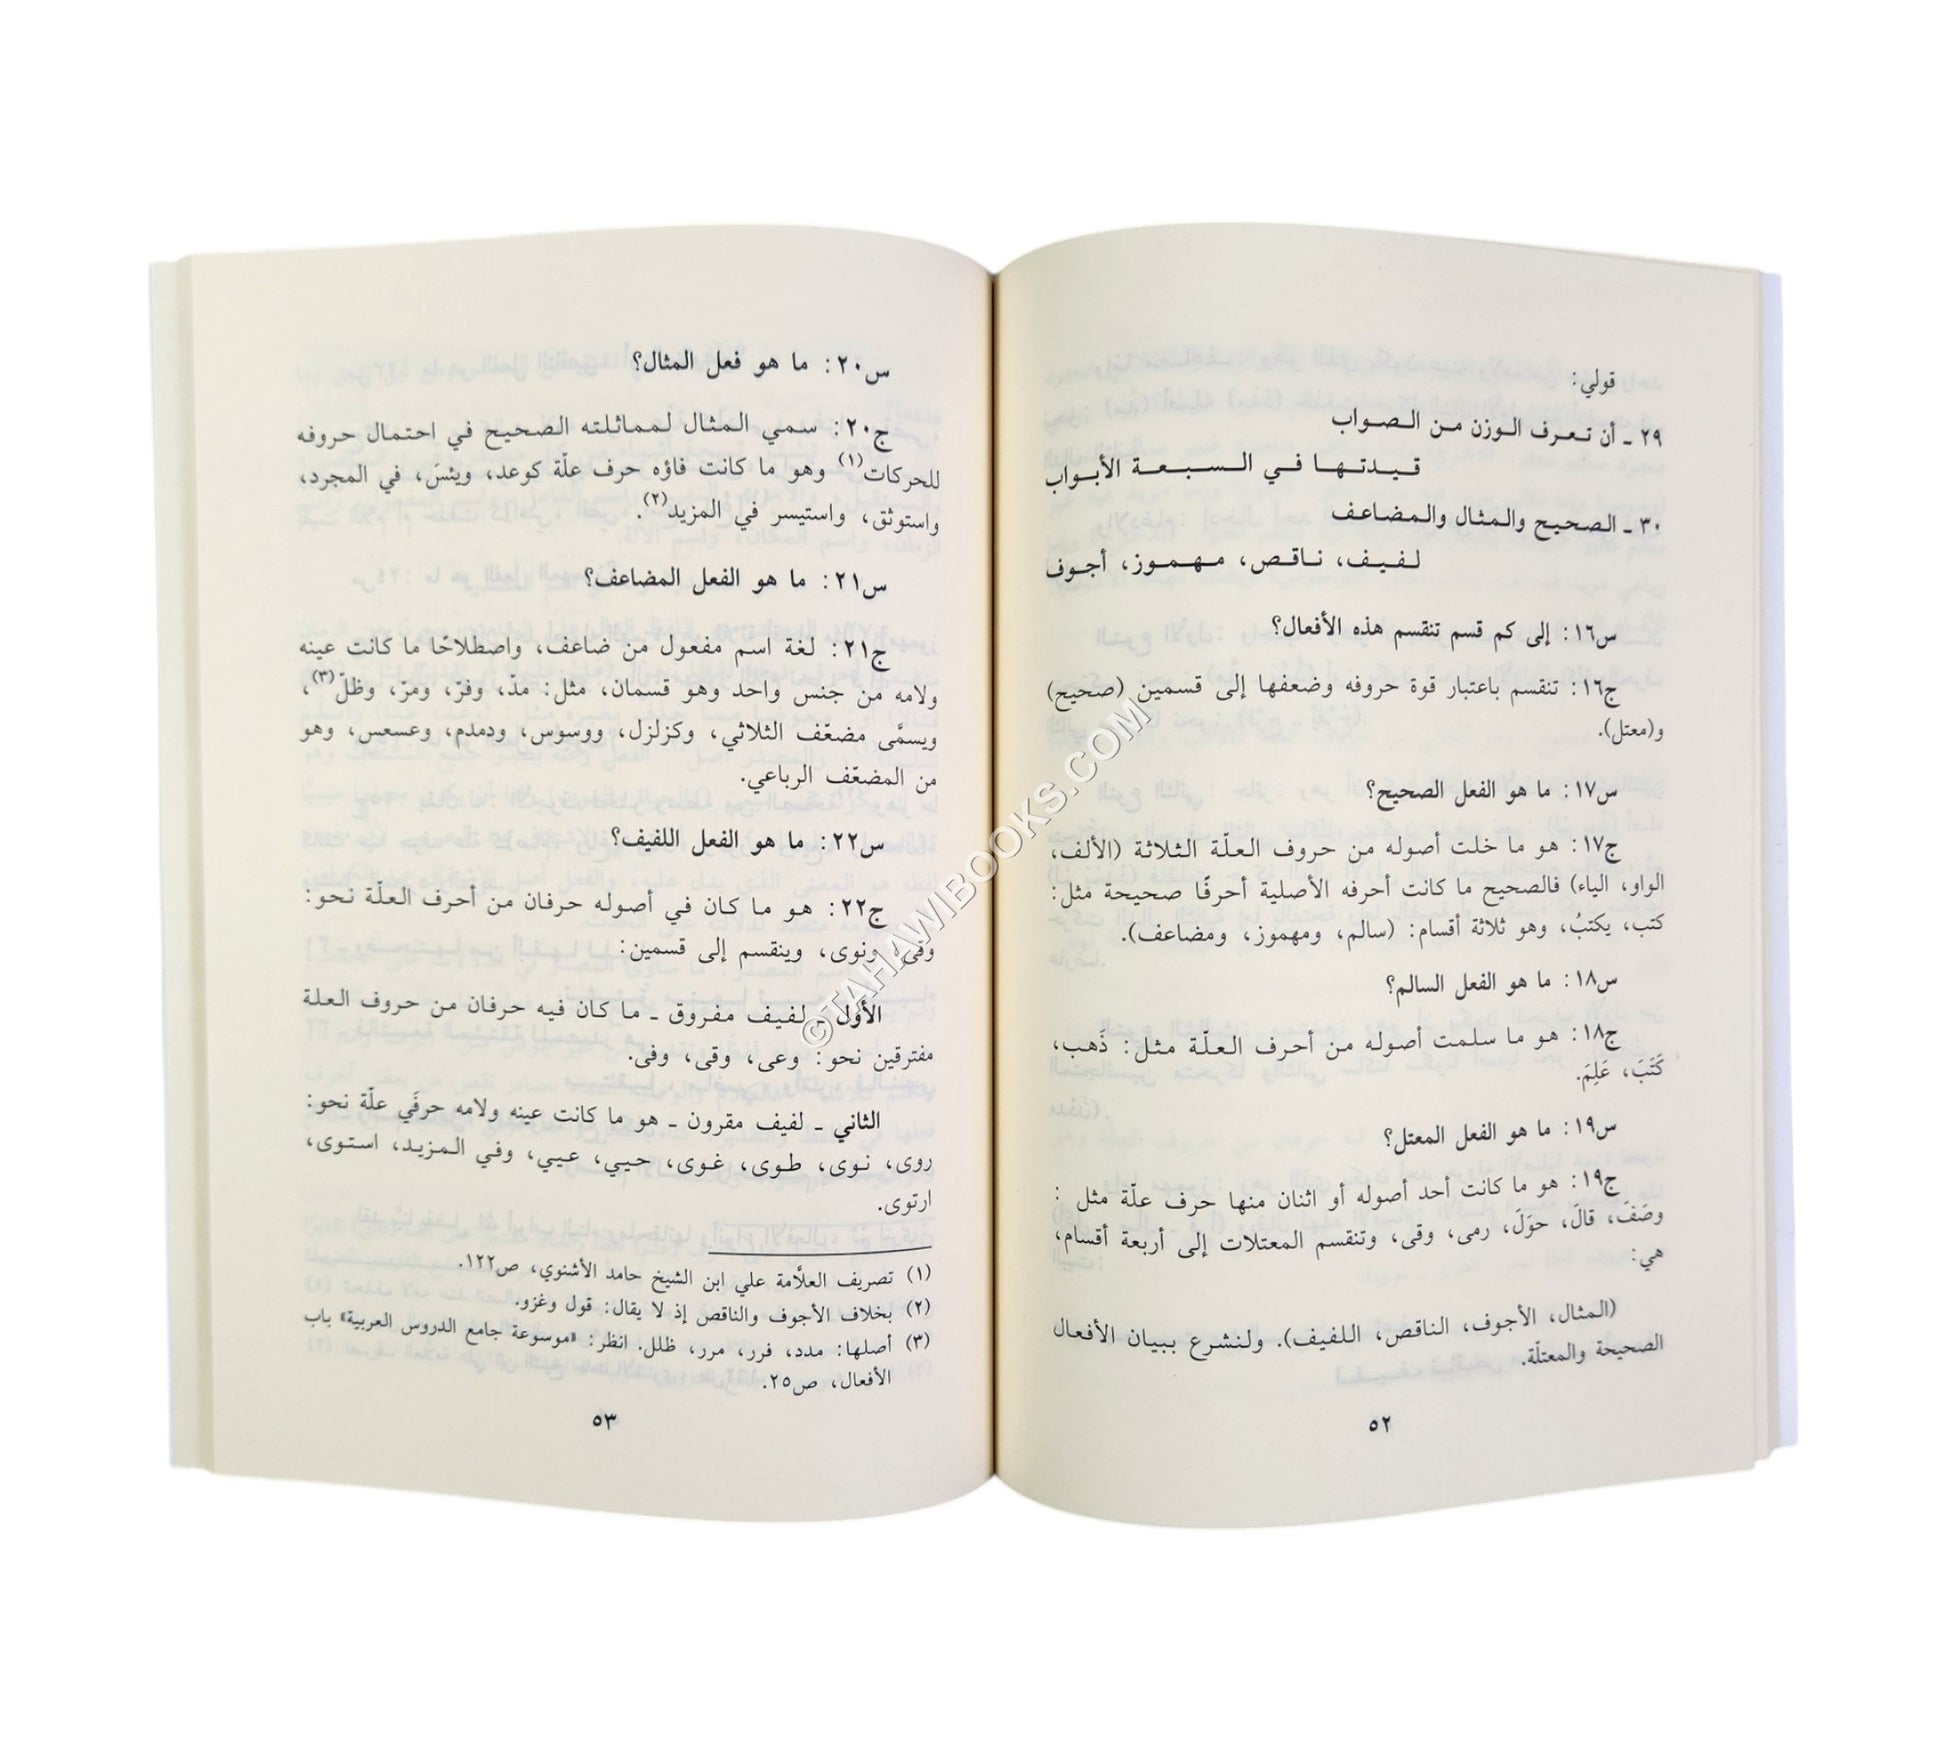 قولي:
٢٩ ـ أن تعرف الوزن من الصواب
قيدتها في السبعة الأبواب
٣٠ ـ الصحيح والمثال والمضاعف
لفيف، ناقص، مهموز، أجوف
س١٦: إلى كم قسم تنقسم هذه الأفعال؟
ج١٦: تنقسم باعتبار قوة حروفه وضعفها إلى قسمين (صحيح)
و(معتل).
س١٧: ما هو الفعل الصحيح؟
ج١٧: هو ما خلت أصوله من حروف العلّة الثلاثة (الألف،
الواو، الياء) فالصحيح ما كانت أحرفه الأصلية أحرفًا صحيحة مثل:
كتب، يكتبُ، وهو ثلاثة أقسام: (سالم، ومهموز، ومضاعف).
س١٨: ما هو الفعل السالم؟
ج١٨: هو ما سلمت أصوله من أحرف العلّة مثل: ذَهب،
كَتَبَ، عَلِمَ.
س١٩: ما هو الفعل المعتل؟
ج١٩: هو ما كانت أحد أصوله أو اثنان منها حرف علّة مثل:
وصَفَ، قالَ، حوَلَ، رمى، وقى، وتنقسم المعتلات إلى أربعة أقسام،
هي:
(المثال، الأجوف، الناقص، اللفيف). ولنشرع ببيان الأفعال
الصحيحة والمعتلّة.
٥٢
س٢٠: ما هو فعل المثال؟
ج٢٠: سمي المثال لمماثلته الصحيح في احتمال حروفه
للحركات(١) وهو ما كانت فاؤه حرف علّة كوعد، ويئسَ، في المجرد،
واستوثق، واستيسر في المزيد(٢).
س٢١: ما هو الفعل المضاعف؟
ج٢١: لغة اسم مفعول من ضاعف، واصطلاحًا ما كانت عينه
ولامه من جنس واحد وهو قسمان، مثل: مدّ، وفرّ، ومرّ، وظلّ(٣)،
ويسمَّى مضعّف الثلاثي، وكزلزل، ووسوس، ودمدم، وعسعس، وهو
من المضعّف الرباعي.
س٢٢: ما هو الفعل اللفيف؟
ج٢٢: هو ما كان في أصوله حرفان من أحرف العلّة نحو:
وفى، ونوى، وينقسم إلى قسمين:
الأول ـ لفيف مفروق ـ ما كان فيه حرفان من حروف العلة
مفترقين نحو: وعى، وقى، وفى.
الثاني ـ لفيف مقرون ـ هو ما كانت عينه ولامه حرفَي علّة نحو:
روى، نوى، طوى، غوى، حيي، عيي، وفي المزيد، استوى،
ارتوى.
(١) تصريف العلَّامة علي ابن الشيخ حامد الأشنوي، ص١٢٢.
(٢) بخلاف الأجوف والناقص إذ لا يقال: قول وغزو.
(٣) أصلها: مدد، فرر، مرر، ظلل. انظر: «موسوعة جامع الدروس العربية» باب
الأفعال، ص٢٥.
٥٣
©TAHAWIBOOKS.COM